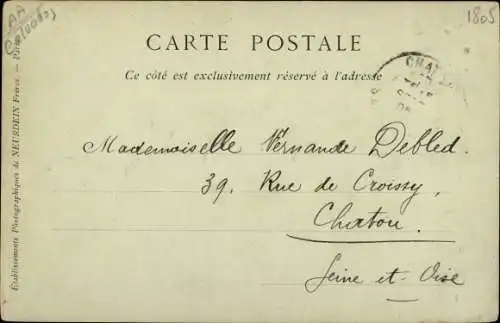 1805
CARTE POSTALE
Ce côté est exclusivement réservé à l'adresse
CHAT
Mademoiselle Vernande Debled.
39, Rue de Croissy,
Chatou.
Seine et Oise
Établissements Photographiques de NEURDEIN Frères. — Paris
AA